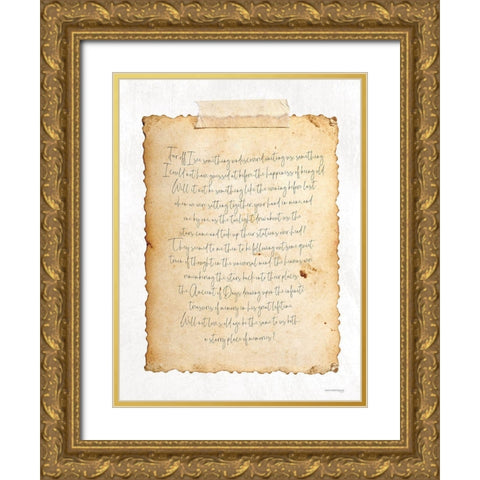 Far off I see something undiscovered waiting us something
I could not have guessed at before the happiness of being old
Will it not be something like the evening before last
when we were sitting together your hand in mine and
one by one as the twilight drew about us the
stars came and took up their stations over head?
They seemed to me then to be following out some great
train of thought in the universal mind the heavens were
remembering the stars back into their places
the Ancient of Days drawing upon the infinite
treasures of memory in his great lifetime
Will not love's old age be the same to us both
a starry place of memories?